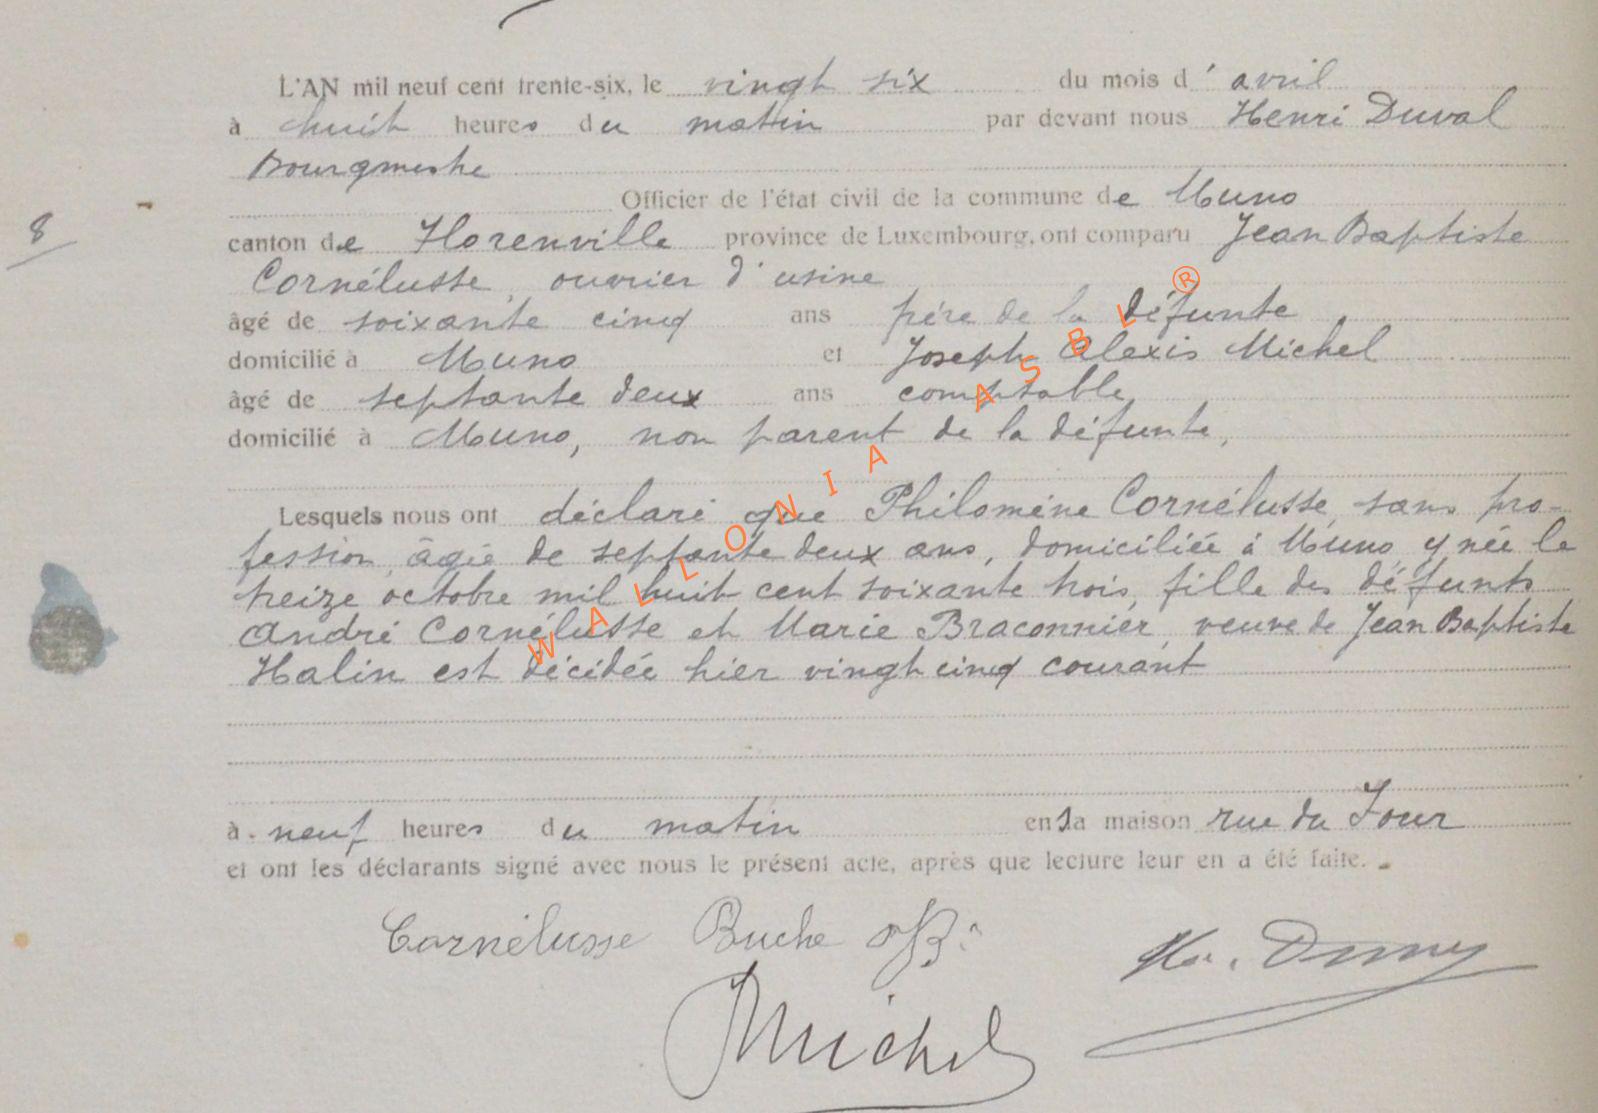 L'AN mil neuf cent trente-six, le vingt six du mois d'avril
à huit heures du matin par devant nous Henri Duval
Bourgmestre
Officier de l'état civil de la commune de Muno
8
canton de Florenville province de Luxembourg, ont comparu Jean Baptiste
Cornélusse, ouvrier d'usine
âgé de soixante cinq ans père de la défunte
domicilié à Muno et Joseph Alexis Michel
âgé de septante deux ans comptable
domicilié à Muno, non parent de la défunte,
Lesquels nous ont déclaré que Philomène Cornélusse, sans pro-
fession, âgée de septante deux ans, domiciliée à Muno y née le
treize octobre mil huit cent soixante trois, fille des défunts
André Cornélusse et Marie Braconnier, veuve de Jean Baptiste
Halin est décédée hier vingt cinq courant
à neuf heures du matin en sa maison rue du Four
et ont les déclarants signé avec nous le présent acte, après que lecture leur en a été faite.
Cornélusse Buche
Michel
WALLONIA ASBL ®